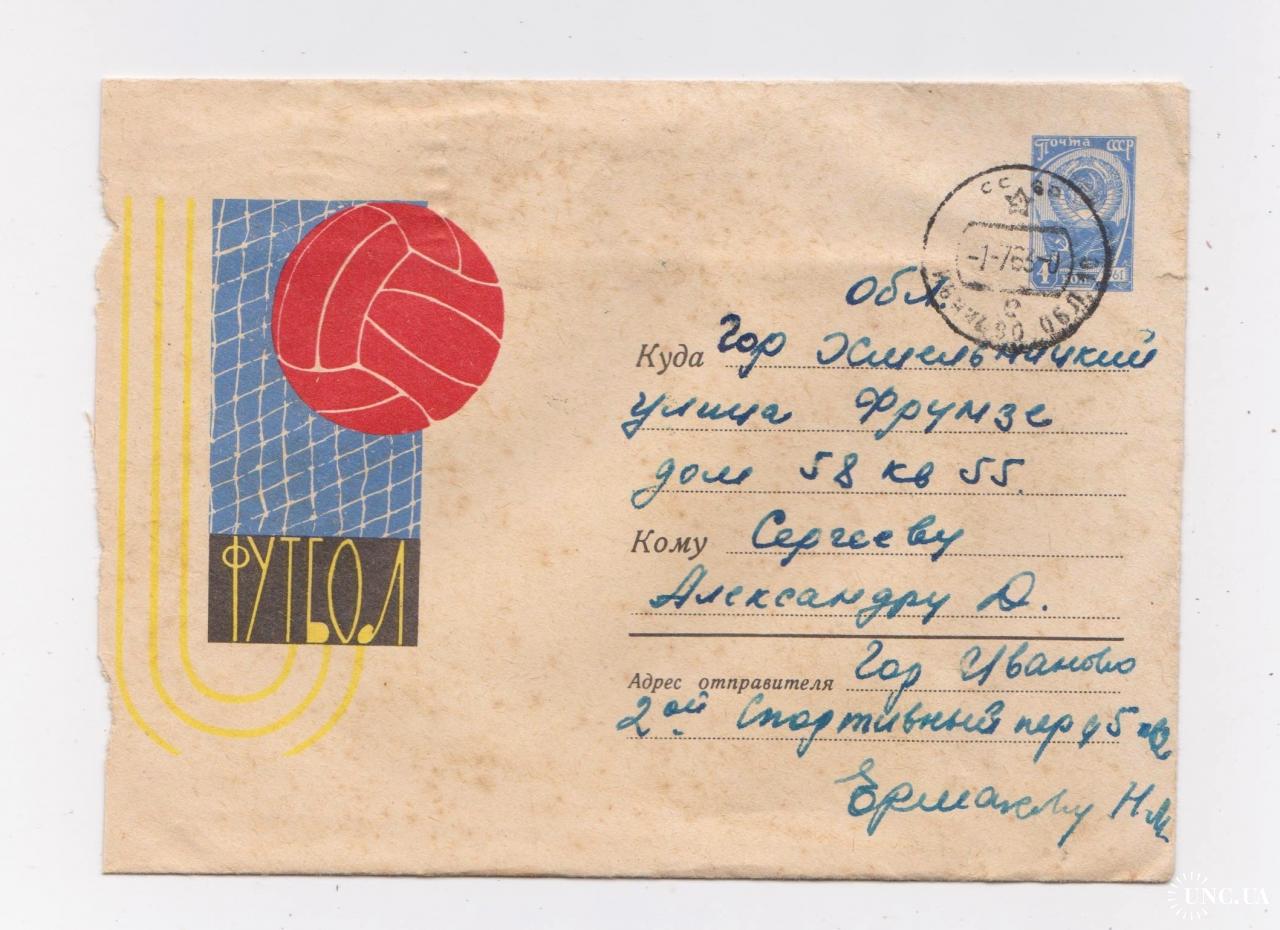 Почта СССР
-1-763-0
ИВАНОВО ОБЛ.
4 коп. 1961
Обл.
Куда Гор Хмельницкий
улица Фрунзе
дом 58 кв 55.
Кому Сергееву
Александру Д.
ФУТБОЛ
Адрес отправителя Гор Иваново
2ой Спортивный пер д5
Ермакову Н М
UNC.UA